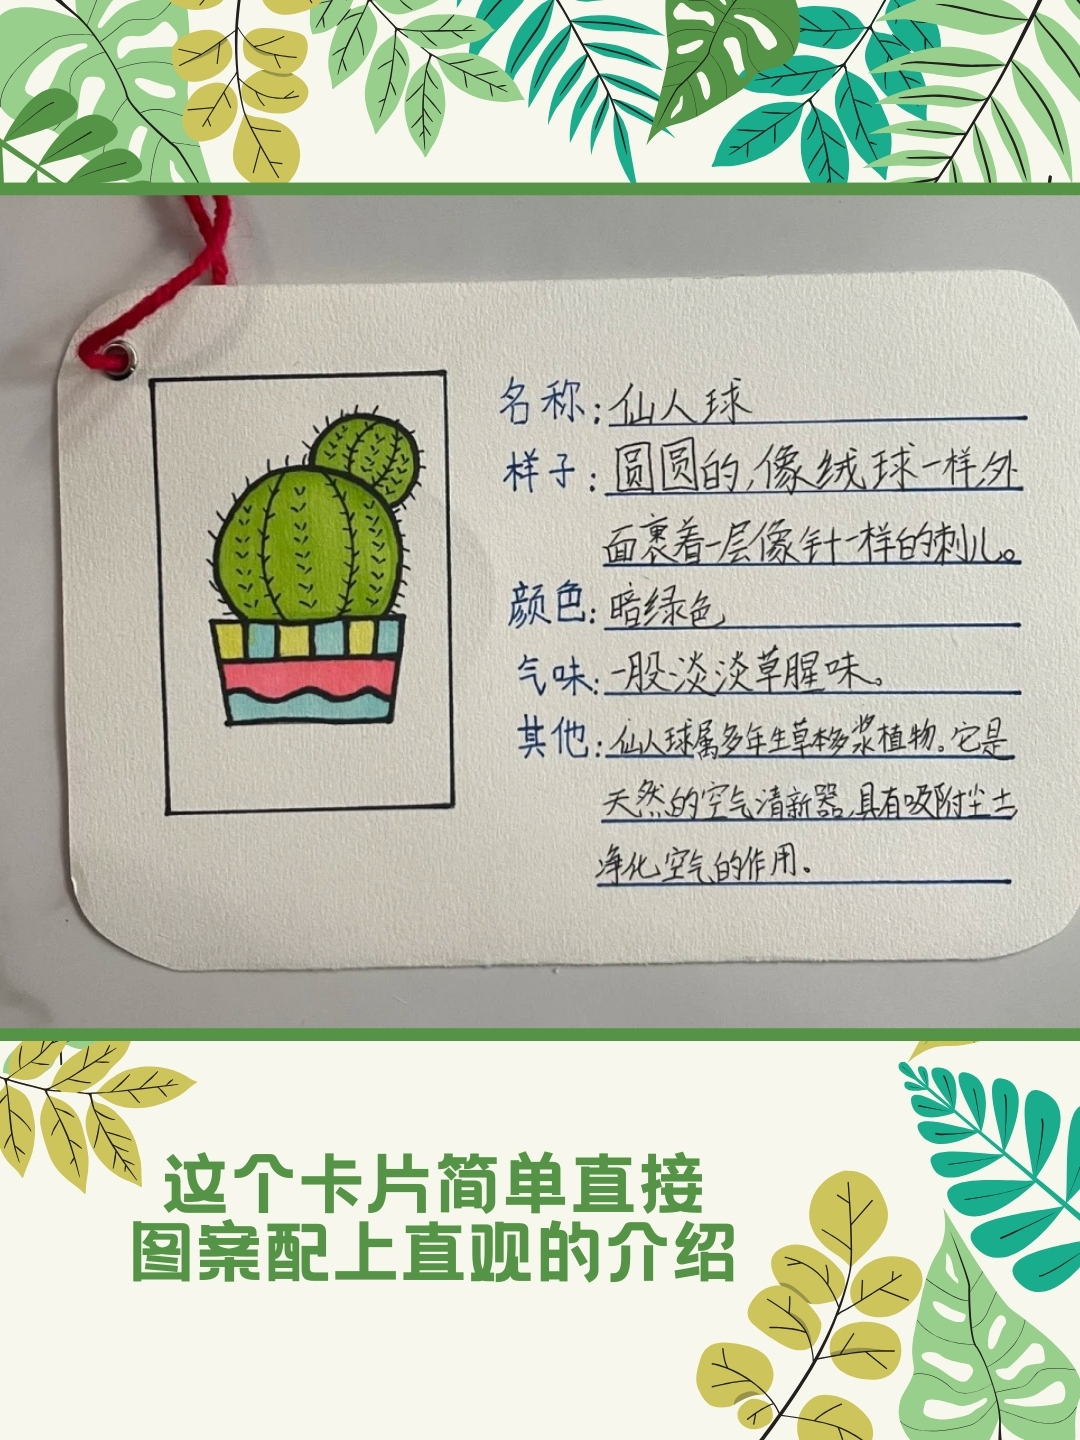 名称：仙人球
样子：圆圆的，像绒球一样，外
面裹着一层像针一样的刺儿。
颜色：暗绿色
气味：一股淡淡草腥味。
其他：仙人球属多年生草本多浆植物。它是
天然的空气清新器，具有吸附尘土
净化空气的作用。
这个卡片简单直接
图案配上直观的介绍